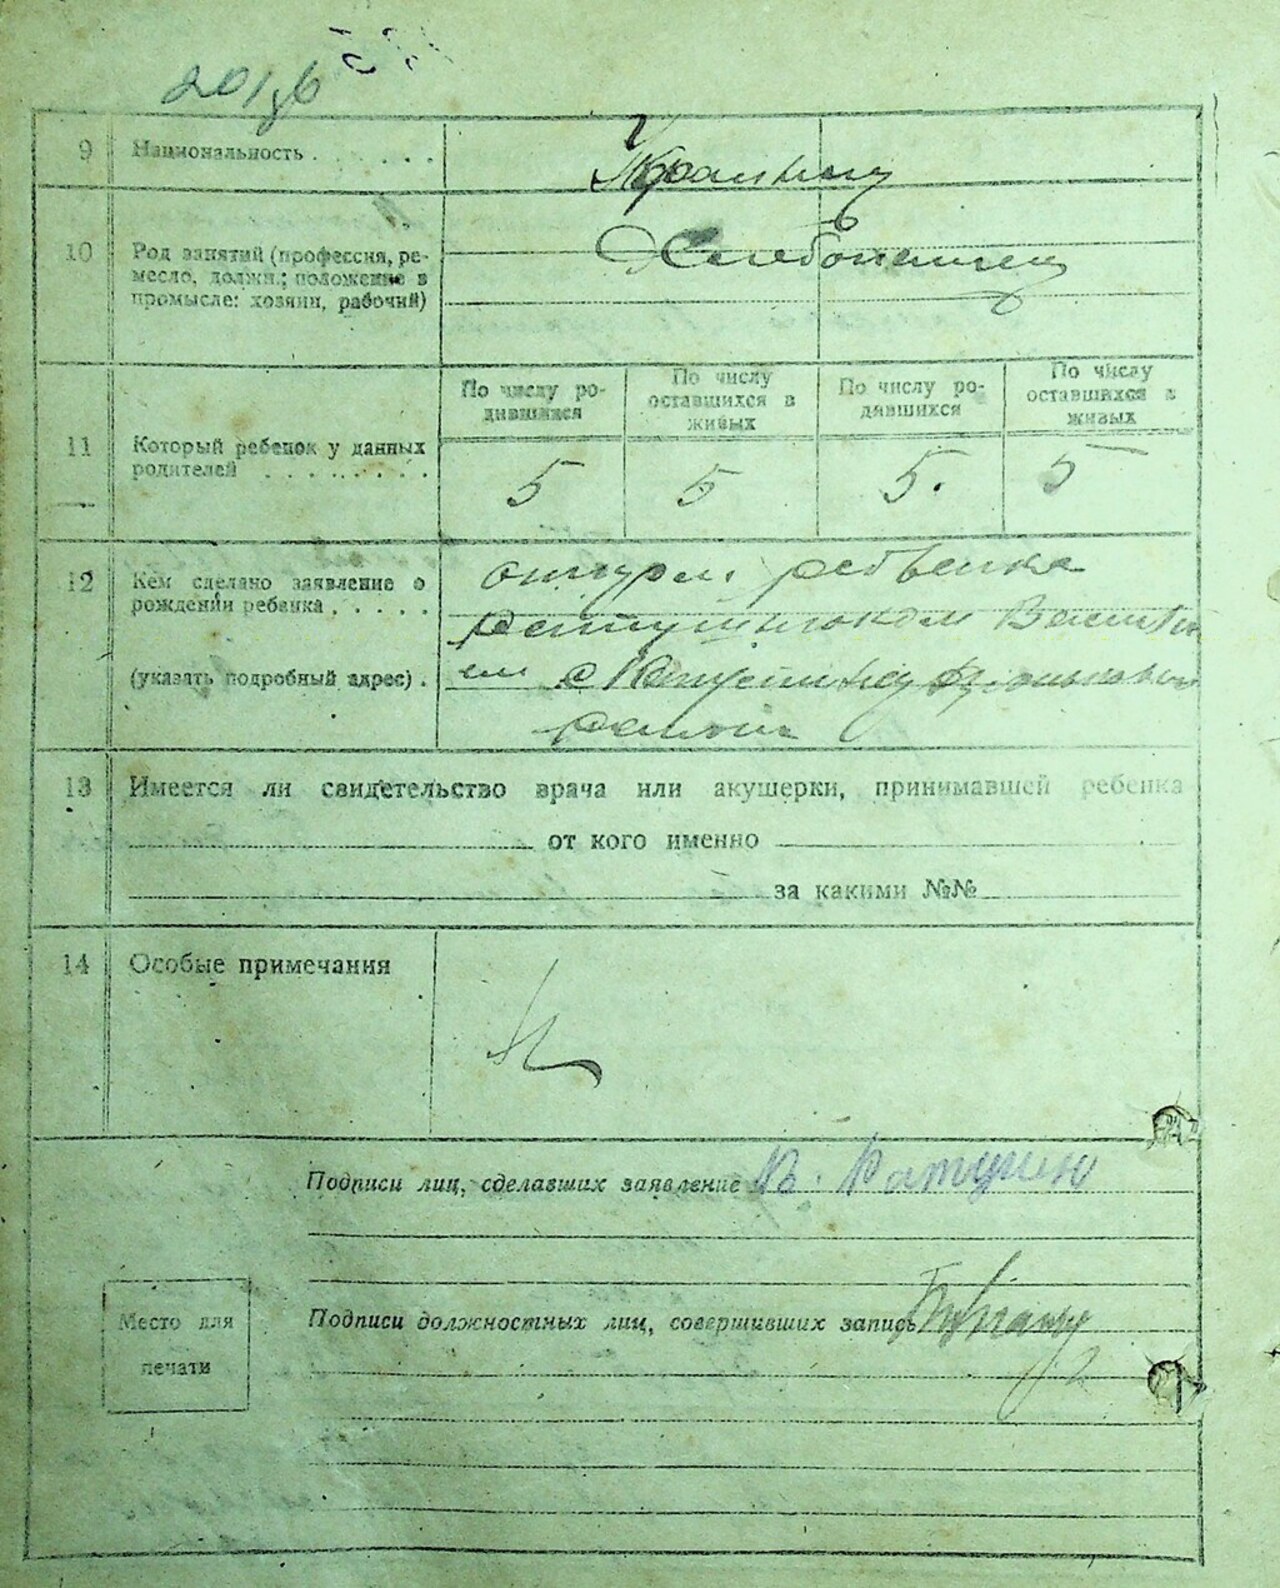 9 Национальность . . . . . . Украинцы
10 Род занятий (профессия, ре-
месло, должн.; положение в
промысле: хозяин, рабочий)
Хлебопашец
По числу ро-
дившихся
По числу
оставшихся в
живых
По числу ро-
дившихся
По числу
оставшихся в
живых
11 Который ребенок у данных
родителей . . . . . . . .
5 5 5. 5
12 Кем сделано заявление о
рождении ребенка . . . . .
(указать подробный адрес) .
отцом ребенка
района
13 Имеется ли свидетельство врача или акушерки, принимавшей ребенка
от кого именно
за какими №№
14 Особые примечания
Подписи лиц, сделавших заявление В. Ратушин
Место для
печати
Подписи должностных лиц, совершивших запись